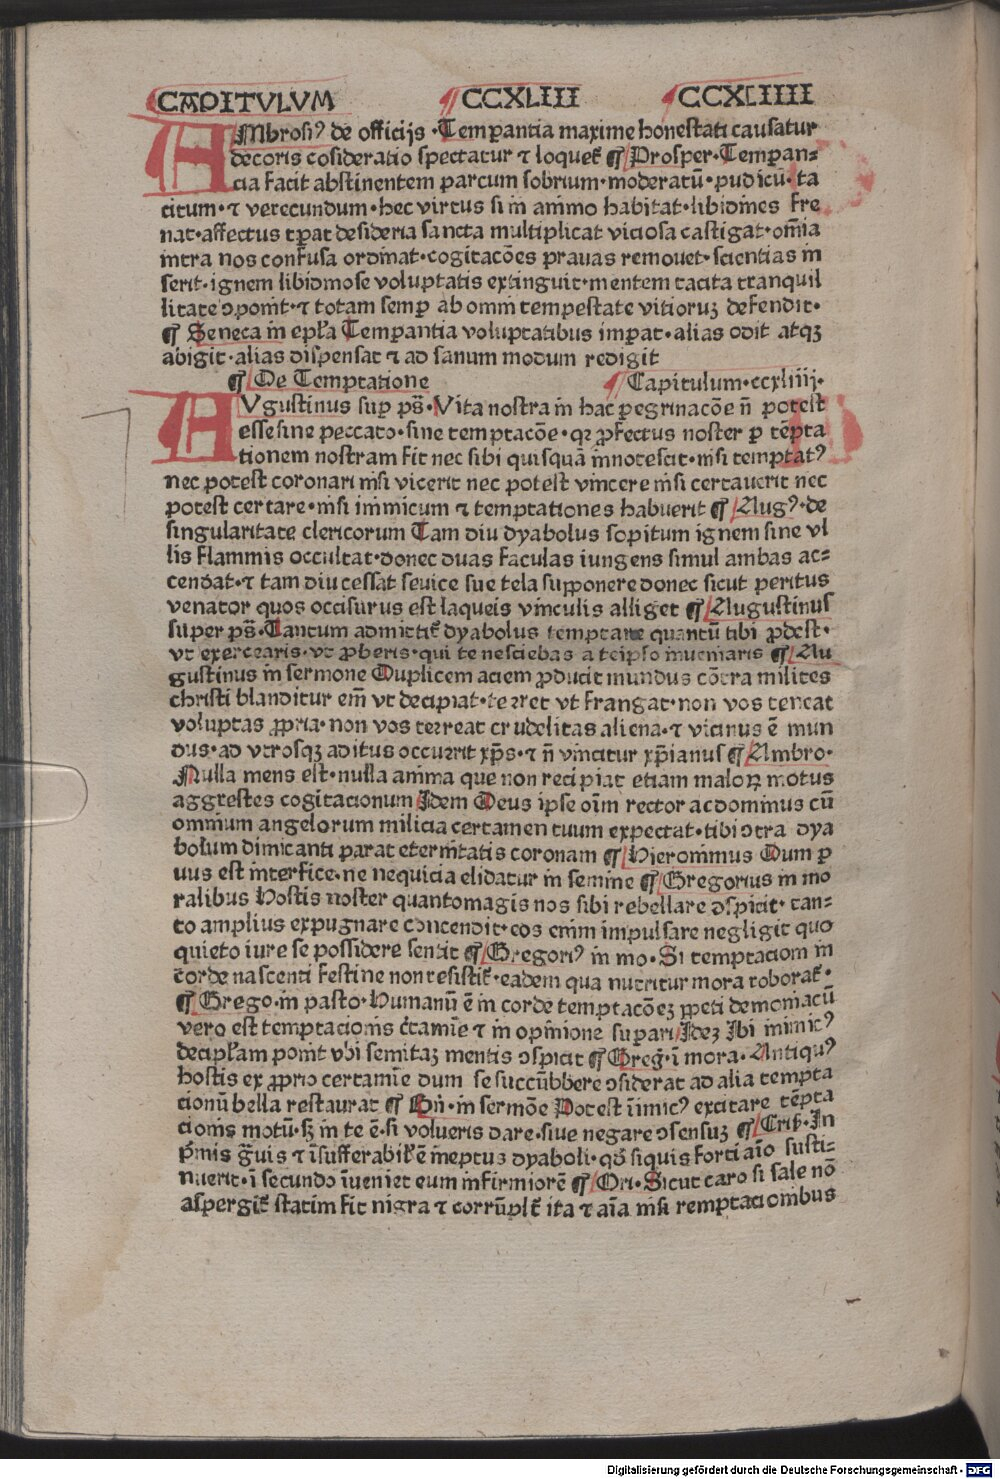 CAPITVLVM CCXLIII CCXLIIII
AMbrosiꝰ de officijs ·Temꝑantia maxime honestati causatur
decoris cōsideratio spectatur ⁊ loquet᷑ ¶ Prosper·Temꝑan⸗
cia facit abstinentem parcum sobrium·moderatū·pudicū·ta
citum·⁊ verecundum·hec virtus si in animo habitat·libidines fre
nat·affectus tꝑat desideria sancta multiplicat viciosa castigat·om̄ia
intra nos confusa ordinat·cogitacōes prauas remouet·scientias in
serit·ignem libidinose voluptatis extinguit·mentem tacita tranquil
litate ↄponit·⁊ totam semꝑ ab omni tempestate vitioruꝫ defendit·
¶ Seneca in epl̄a Temꝑantia voluptatibus imꝑat·alias odit atqꝫ
abigit·alias dispensat ⁊ ad sanum modum redigit
¶ De Temptatione ¶ Capitulum·ccxliiij·
AVgustinus suꝑ ps̄·Vita nostra in hac ꝑegrinacōe nō potest
esse sine peccato·sine temptacōe·qꝛ ꝓfectus noster ꝑ tēpta
tionem nostram fit nec sibi quisquā innotescit·nisi temptatꝰ
nec potest coronari nisi vicerit nec potest vincere nisi certauerit nec
potest certare·nisi inimicum ⁊ temptationes habuerit ¶ Augꝰ·de
singularitate clericorum Tam diu dyabolus sopitum ignem sine vl
lis flammis occultat·donec duas faculas iungens simul ambas ac⸗
cendat·⁊ tam diu cessat seuice sue tela supponere donec sicut peritus
venator quos occisurus est laqueis vinculis alliget ¶ Augustinus
super ps̄·Tantum admittit᷑ dyabolus temptare quantū tibi ꝓdest·
vt exercearis·vt ꝓberis·qui te nesciebas a teipso inueniaris ¶ Au
gustinus in sermone Duplicem aciem ꝓducit mundus cōtra milites
christi blanditur em̄ vt decipiat·terret vt frangat·non vos teneat
voluptas ꝓpria·non vos terreat crudelitas aliena·⁊ victus ē mun
dus·ad vtrosqꝫ aditus occurrit xp̄s·⁊ n̄ vincitur xp̄ianus ¶ Ambro·
Nulla mens est·nulla anima que non recipiat etiam maloꝝ motus
aggrestes cogitacionum Idem Deus ipse oīm rector ac dominus cū
omnium angelorum milicia certamen tuum expectat·tibi ↄtra dya
bolum dimicanti parat eternitatis coronam ¶ Hieronimus Dum ꝑ
uus est interfice·ne nequicia elidatur in semine ¶ Gregorius in mo
ralibus Hostis noster quantomagis nos sibi rebellare ↄspicit· tan⸗
to amplius expugnare cōncendit·eos enim impulsare negligit quo
quieto iure se possidere sentit ¶ Gregoriꝰ in mo·Si temptaciom in
corde nascenti festine non resistit᷑·eadem qua nutritur mora roborat᷑·
¶ Grego·in pasto·Humanū ē in corde temptacōeꝫ ꝑpeti demoniacū
vero est temptacionis c̄tamīe ⁊ in opinione supari Ideꝫ Ibi inimicꝰ
decipl̄am ponit vbi semitaꝫ mentis ↄspicit ¶ Greg·ī mora·Antiquꝰ
hostis ex ꝓprio certamīe dum se succūbere ↄsiderat ad alia tempta
cionū bella restaurat ¶ Bn̄·in sermōe Potest īimicꝰ excitare tēpta
cionis motū·sꝫ in te ē·si volueris dare·siue negare ↄsensuꝫ ¶ Cris·In
p̄mis g̃uis ⁊ īsufferabil᷑ ē ineptus dyaboli·qd̄ si quis forti aīo susti⸗
nuerit·ī secundo īueniet eum infirmiorē ¶ Ori·Sicut caro si sale nō
aspergit᷑ statim fit nigra ⁊ corrūpit᷑ ita ⁊ aīa nisi temptacionibus
Digitalisierung gefördert durch die Deutsche Forschungsgemeinschaft - DFG